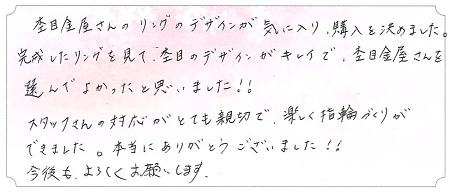 杢目金屋さんのリングのデザインが気に入り、購入を決めました。
完成したリングを見て、杢目のデザインがキレイで、杢目金屋さんを
選んでよかったと思いました!!
スタッフさんの対応がとても親切で、楽しく指輪づくりが
できました。本当にありがとうございました!!
今後も、よろしくお願いします。